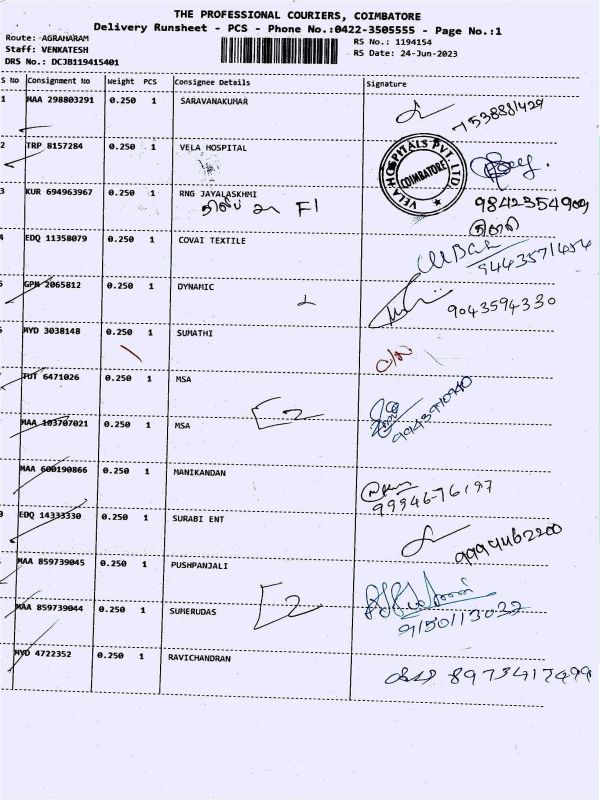 THE PROFESSIONAL COURIERS, COIMBATORE
Delivery Runsheet - PCS - Phone No.:0422-3505555 - Page No.:1
Route: AGRAHARAM
RS No.: 1194154
Staff: VENKATESH
RS Date: 24-Jun-2023
DRS No.: DCJB119415401
S No Consignment No Weight PCS Consignee Details Signature
1 MAA 298803291 0.250 1 SARAVANAKUMAR
7538881429
2 TRP 8157284 0.250 1 VELA HOSPITAL
VELA HOSPITALS PVT. LTD.
COIMBATORE
3 KUR 694963967 0.250 1 RNG JAYALASKHMI
F1
4 EDQ 11358079 0.250 1 COVAI TEXTILE
9443571454
GPM 2065812 0.250 1 DYNAMIC
9043594330
MYD 3038148 0.250 1 SUMATHI
TUT 6471026 0.250 1 MSA
E2
MAA 103707021 0.250 1 MSA
MAA 600190866 0.250 1 MANIKANDAN
99946-76197
EDQ 14333330 0.250 1 SURABI ENT
9994462200
MAA 859739045 0.250 1 PUSHPANJALI
MAA 859739044 0.250 1 SUMERUDAS
E2
9150113032
MYD 4722352 0.250 1 RAVICHANDRAN
8973417499